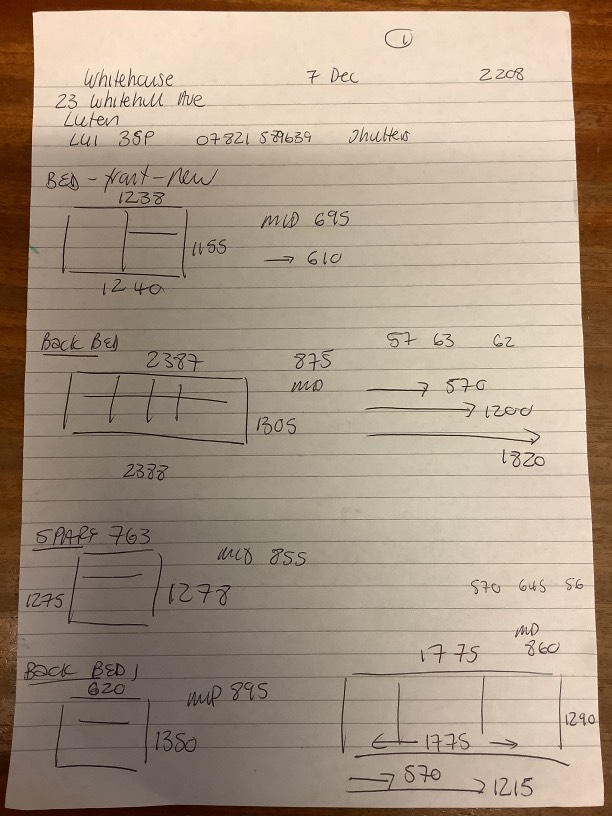 1
Whitehouse 7 Dec 2208
23 Whitehill Ave
Luten
LU1 3SP 07821 589639 Shutters
BED - front - new
1238
MID 695
1155
→ 610
1240
BACK BED 57 63 62
2387 875
MID → 570
→ 1200
1305
→ 1820
2388
SPARE 763
MID 855
1275 1278
570 645 56
MID
1775 860
BACK BED 1
620
MID 895
1290
1350
← 1775 →
→ 570
→ 1215